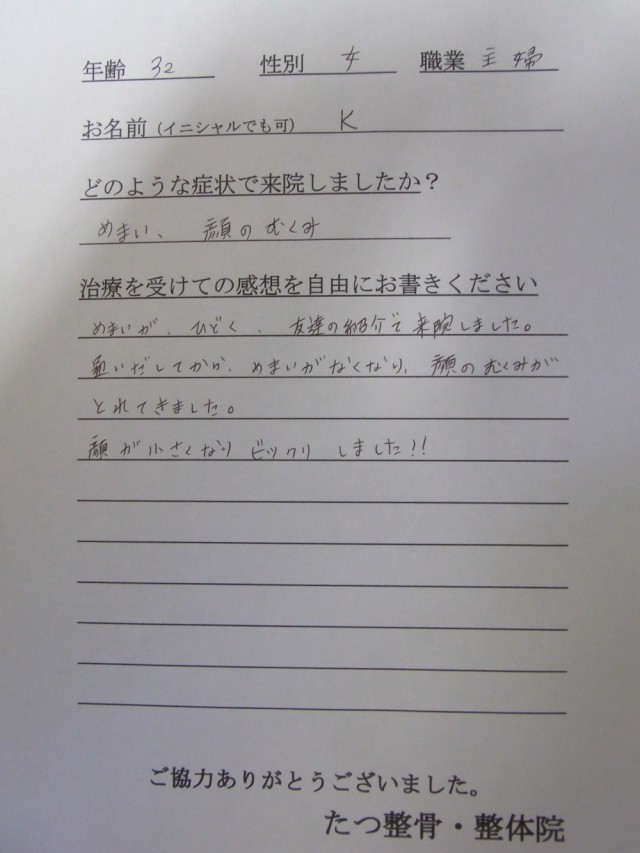 年齢 32 性別 女 職業 主婦
お名前（イニシャルでも可） K
どのような症状で来院しましたか？
めまい、顔のむくみ
治療を受けての感想を自由にお書きください
めまいが、ひどく、友達の紹介で来院しました。
通いだしてから、めまいがなくなり、顔のむくみが
とれてきました。
顔が小さくなりビックリしました!!
ご協力ありがとうございました。
たつ整骨・整体院